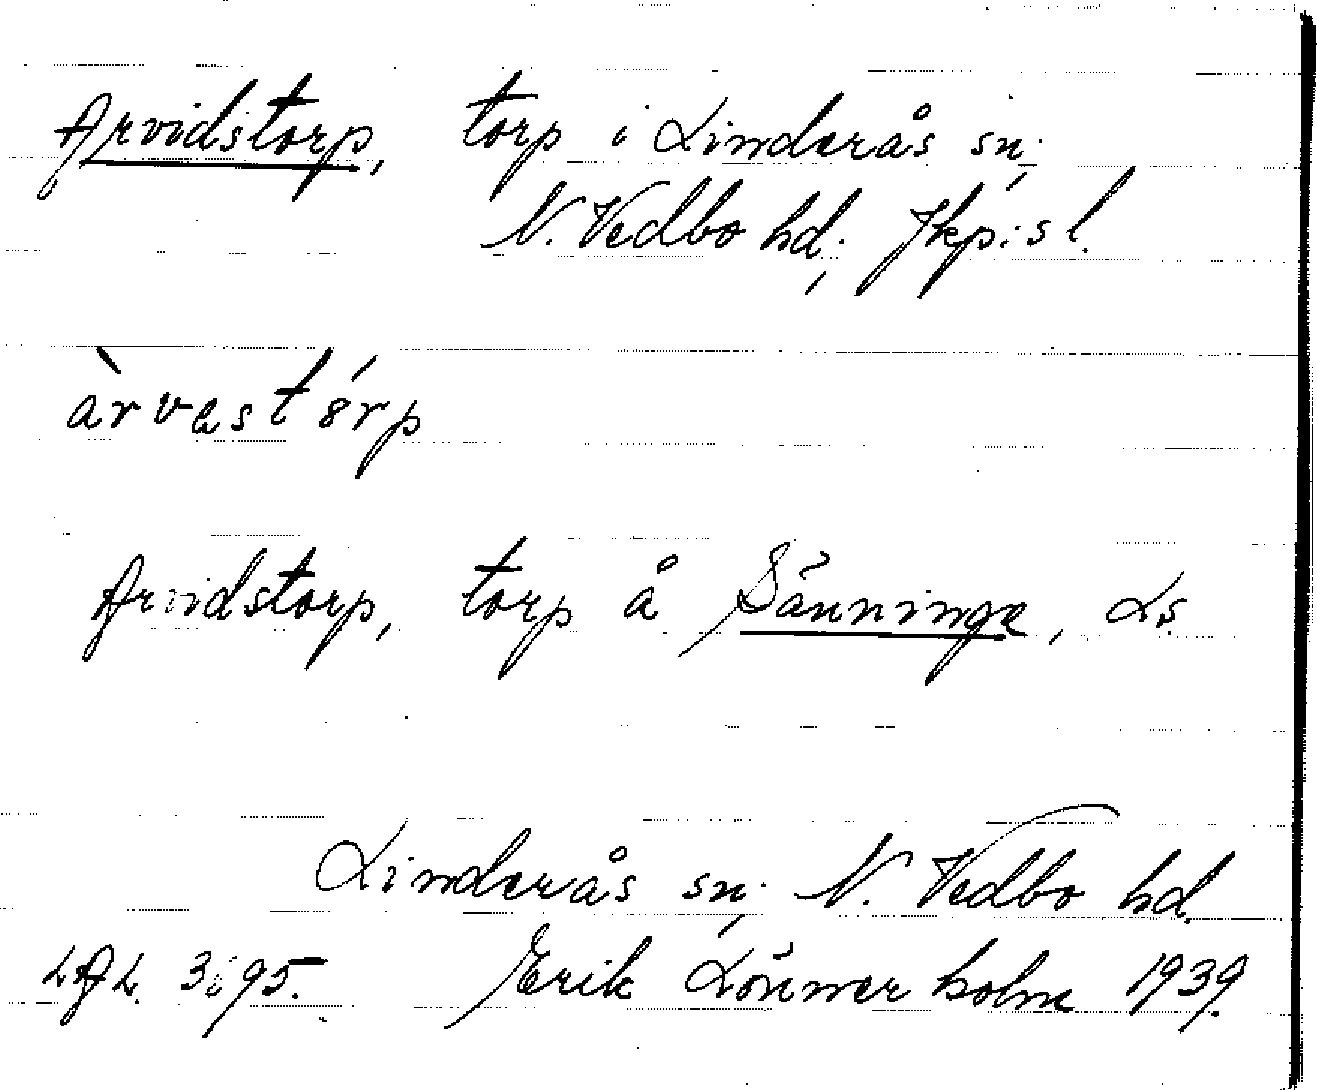 Arvidstorp, torp i Linderås sn;
N. Vedbo hd; Jkp:s l.
àrvastórp
Arvidstorp, torp å Sänninge, Ls
Linderås sn; N. Vedbo hd.
Erik Lönnerholm 1939.